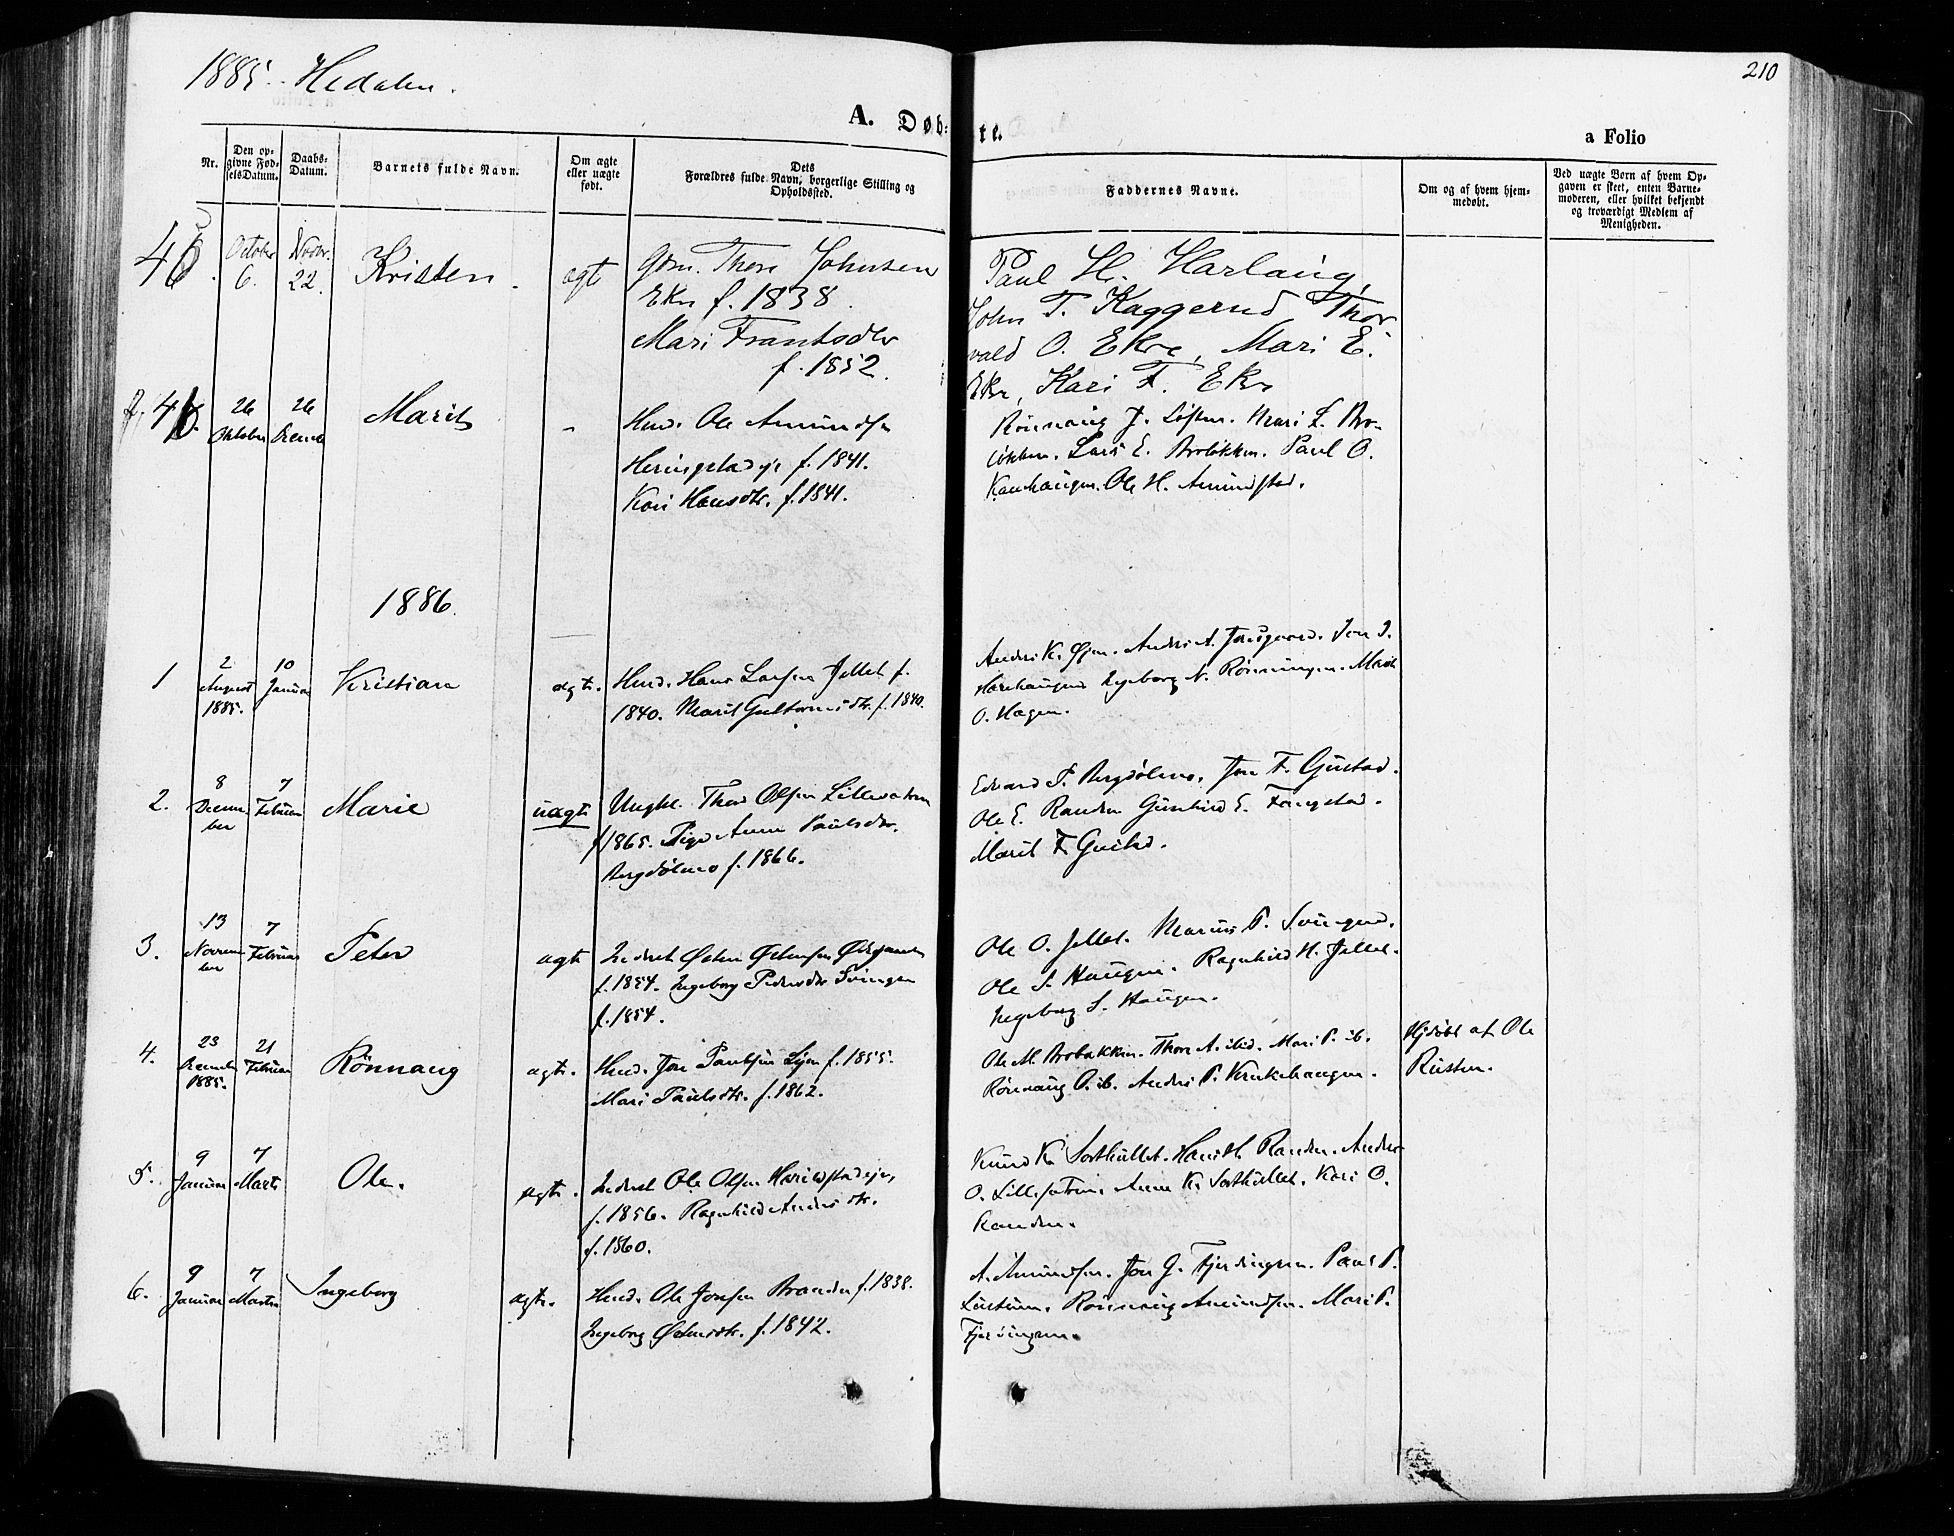 1885. Hedalen.
210
A. Døb-
te.
a Folio
Nr.
Den op-
givne Fød-
selsDatum.
Daabs-
Datum.
Barnets fulde Navn.
Om ægte
eller uægte
født.
Dets
Forældres fulde Navn, borgerlige Stilling og
Opholdssted.
Faddernes Navne.
Om og af hvem hjem-
medøbt.
Ved uægte Børn af hvem Op-
gaven er skeet, enten Barne-
moderen, eller hvilket bekjendt
og troværdigt Medlem af
Menigheden.
October
6.
Novbr.
22.
Kristen
ægt
Thore Johnsen
f. 1838.
Mari Frantsdtr
f. 1852.
Paul H. Harlaug,
John T. Kaggerud Thor
vald O. Ekre, Mari E.
Kari F.
26
Oktober
26
Marit
-
Ole Amundsen
f. 1841.
Kari Hansdtr. f. 1841.
Rönnaug J. Mari E. Bro-
løkken. Lars E. Broløkken. Paul O.
Ole H. Amundstad.
1886.
1
2
August
1885.
10
Januar
Kristian
ægt.
Husd. Hans Larsen Jellet f.
1840. Marit Guttormsdtr. f. 1840.
Anders K. Anders A. Jon J.
Ingeborg N. Rönningen. Marit
O. Hagen.
2.
8
Decem-
ber
7
Februar
Marie
uægt
Ungkl. Thore Olsen
f 1865. Pige Anne Paulsdtr.
Bergdølmo f. 1866.
Edvard P. Bergdølmo. Jon F. Gustad.
Ole E. Randen Gunhild E.
Marit F. Gustad.
3.
13
Novem-
ber
7
Februar
Peter
ægt
Inderst Østen Østensen
f. 1854. Ingeborg Pedersdtr Svingen
f. 1854.
Ole O. Jellet. Marius P.
Ole S. Haugen. Ragnhild H. Jellet.
Ingeborg S. Haugen.
4.
23
Decembr
1885.
21
Februar
Rönnaug
ægt.
Husd. Jon Paulsen f. 1855.
Mari Paulsdtr. f. 1862.
Ole M. Brobakken. Thore A. ibid. Mari P. ib.
Rönnaug O. ib. Anders P. Krukehaugen.
Hjdøbt af Ole
Rusten.
5.
9
Januar
7
Marts
Ole.
ægt.
Inderst Ole Olsen
f. 1856. Ragnhild Andersdtr.
f. 1860.
Knud K. Sorthullet. Randen. Anders
O. Anne K. Sorthullet. Kari O.
Randen.
6.
9
Januar
7
Marts
Ingeborg
ægt.
Husd. Ole Jonsen Branden f. 1838.
Ingeborg Østensdtr. f. 1842.
A. Amundsen. Jon G. Fjerdingen. Paul P.
Rönnaug Amundsen. Mari P.
Fjerdingen.